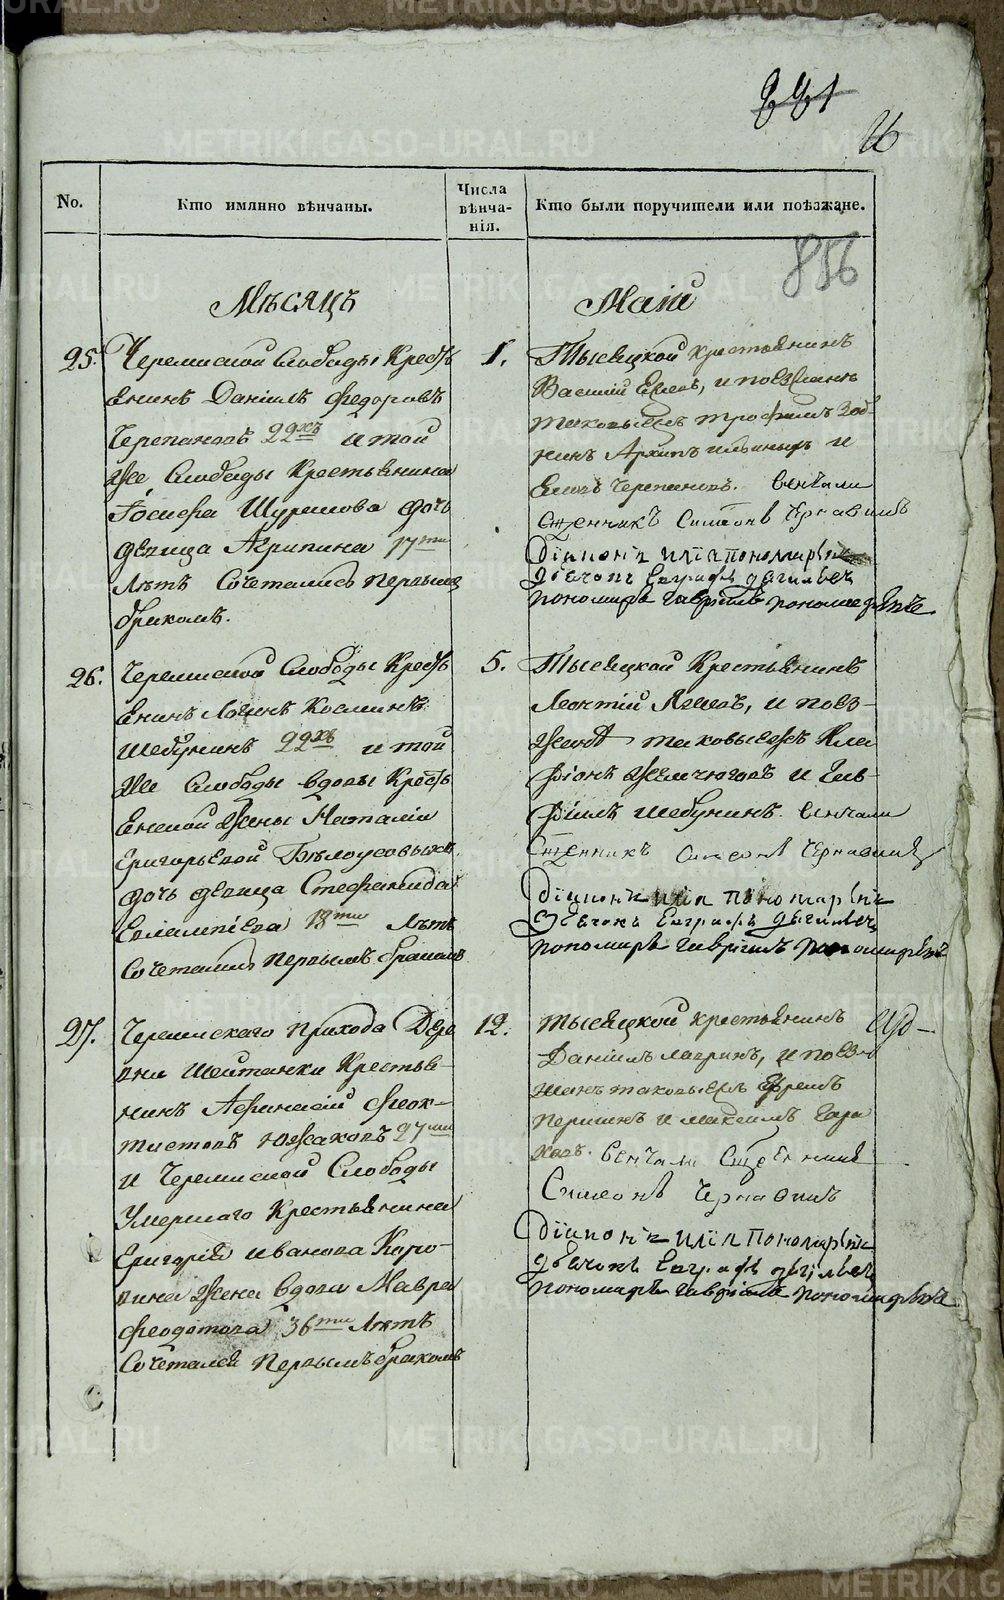 241
26
No.
Кто имянно вѣнчаны.
Числа
вѣнча-
нія.
Кто были поручители или поѣзжане.
856
Мѣсяцъ
Маій
25.
Черемиской Слободы Крестъ
янинъ Даніилъ Федоровъ
Черепановъ 22хъ и той
же Слободы Крестьянина
Іосифа дочь
девица Агрипина 17ти
Лѣтъ Сочетались первымъ
бракомъ.
1.
Тысяцкой крестьянинъ
Василій и поезжанѣ
таковыежъ Трофимъ
Архипъ и
Черепановъ. венчали
Сщенникъ Симеонъ Чернавинъ
Діаконъ Илія Пономаревъ
дьячокъ Евграфъ
пономарь Гавріилъ Пономаревъ
26.
Черемиской Слободы Крестъ
янинъ Логинъ Косминъ
Шебунинъ 22хъ и той
же Слободы вдовы Крестъ
янской Жены Наталіи
Григорьевой Бѣлоусовыхъ
дочь девица Стефанида
18ти Лѣтъ
Сочетались первымъ бракомъ
5.
Тысяцкой Крестьянинъ
Леонтій и поез-
жанѣ таковыежъ
и Гав-
ріилъ Шебунинъ. венчали
Сщенникъ Симеонъ Чернавинъ
Діаконъ Илія Пономаревъ
дьячокъ Евграфъ
пономарь Гавріилъ Пономаревъ
27.
Черемискаго прихода Дере
вни Шайтанки Крестья-
нинъ Афанасій Феок-
тистовъ Южаковъ 27ми
и Черемиской Слободы
Умершаго Крестьянина
Григорія Иванова Коро-
вина Жена вдова Мавра
Феодотова 36ти Лѣтъ
Сочетался первымъ бракомъ
12.
Тысяцкой крестьянинъ
Даніилъ и поез-
жанѣ таковыежъ Ефремъ
и Максимъ
венчали Сщенникъ
Симеонъ Чернавинъ
Діаконъ Илія Пономаревъ
дьячокъ Евграфъ
пономарь Гавріилъ Пономаревъ
METRIKI.GASO-URAL.RU